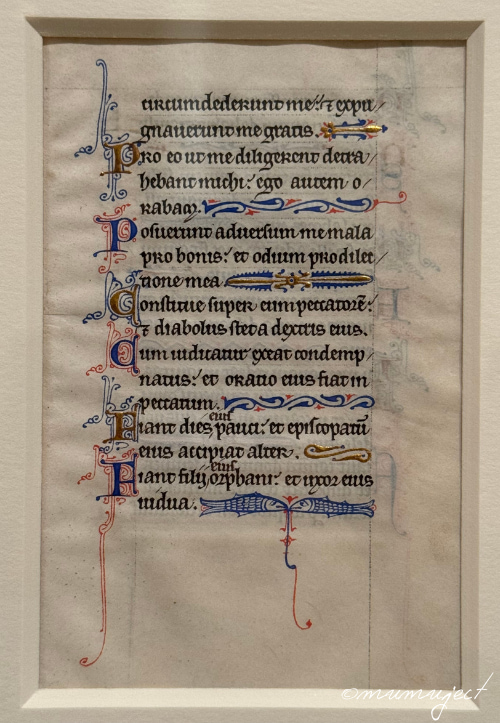 circumdederunt me: ⁊ expu/
gnauerunt me gratis.
Pro eo ut me diligerent detra/
hebant michi: ego autem o/
rabam.
Posuerunt aduersum me mala
pro bonis: et odium pro dilec
tione mea
Constitue super eum peccatorē:
⁊ diabolus stet a dextris eius.
Cum iudicatur exeat condemp/
natus: et oratio eius fiat in
peccatum.
Fiant dies eius pauci: et episcopatū
eius accipiat alter.
Fiant filij eius orphani: et uxor eius
uidua.
©mumuject